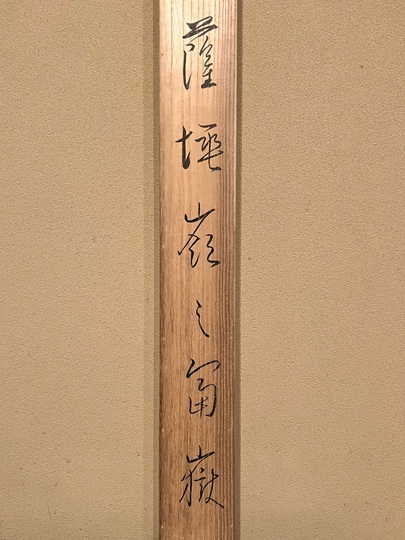 薩埵嶺之冨嶽